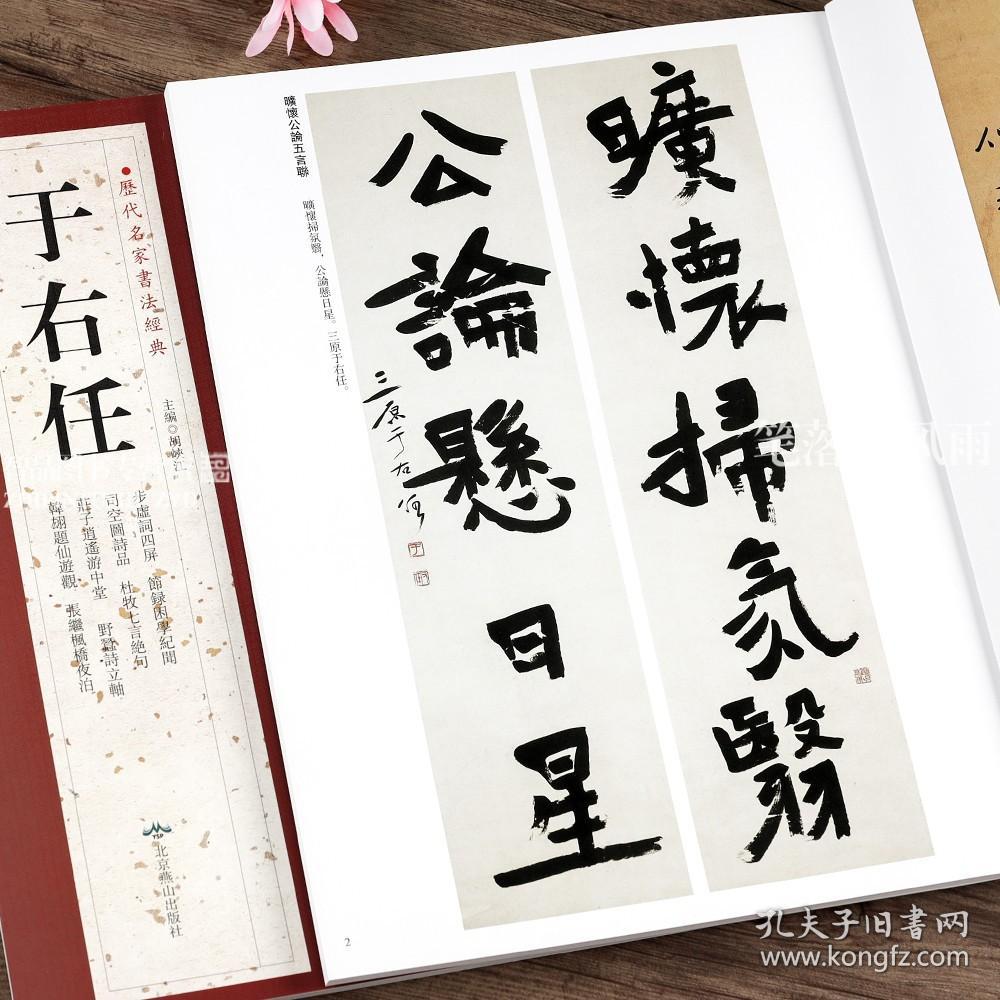 ●歷代名家書法經典
于右任
主編◎胡峽江
步虛詞四屏 節録困學紀聞
司空圖詩品 杜牧七言絶句
莊子逍遙游中堂 野蠶詩立軸
韓翃題仙遊觀 張繼楓橋夜泊
YSP
北京燕山出版社
曠懷公論五言聯
曠懷掃氛翳，公論懸日星。三原于右任。
曠懷掃氛翳
公論懸日星
三原于右任
2
笔落 风雨
孔夫子旧书网
www.kongfz.com